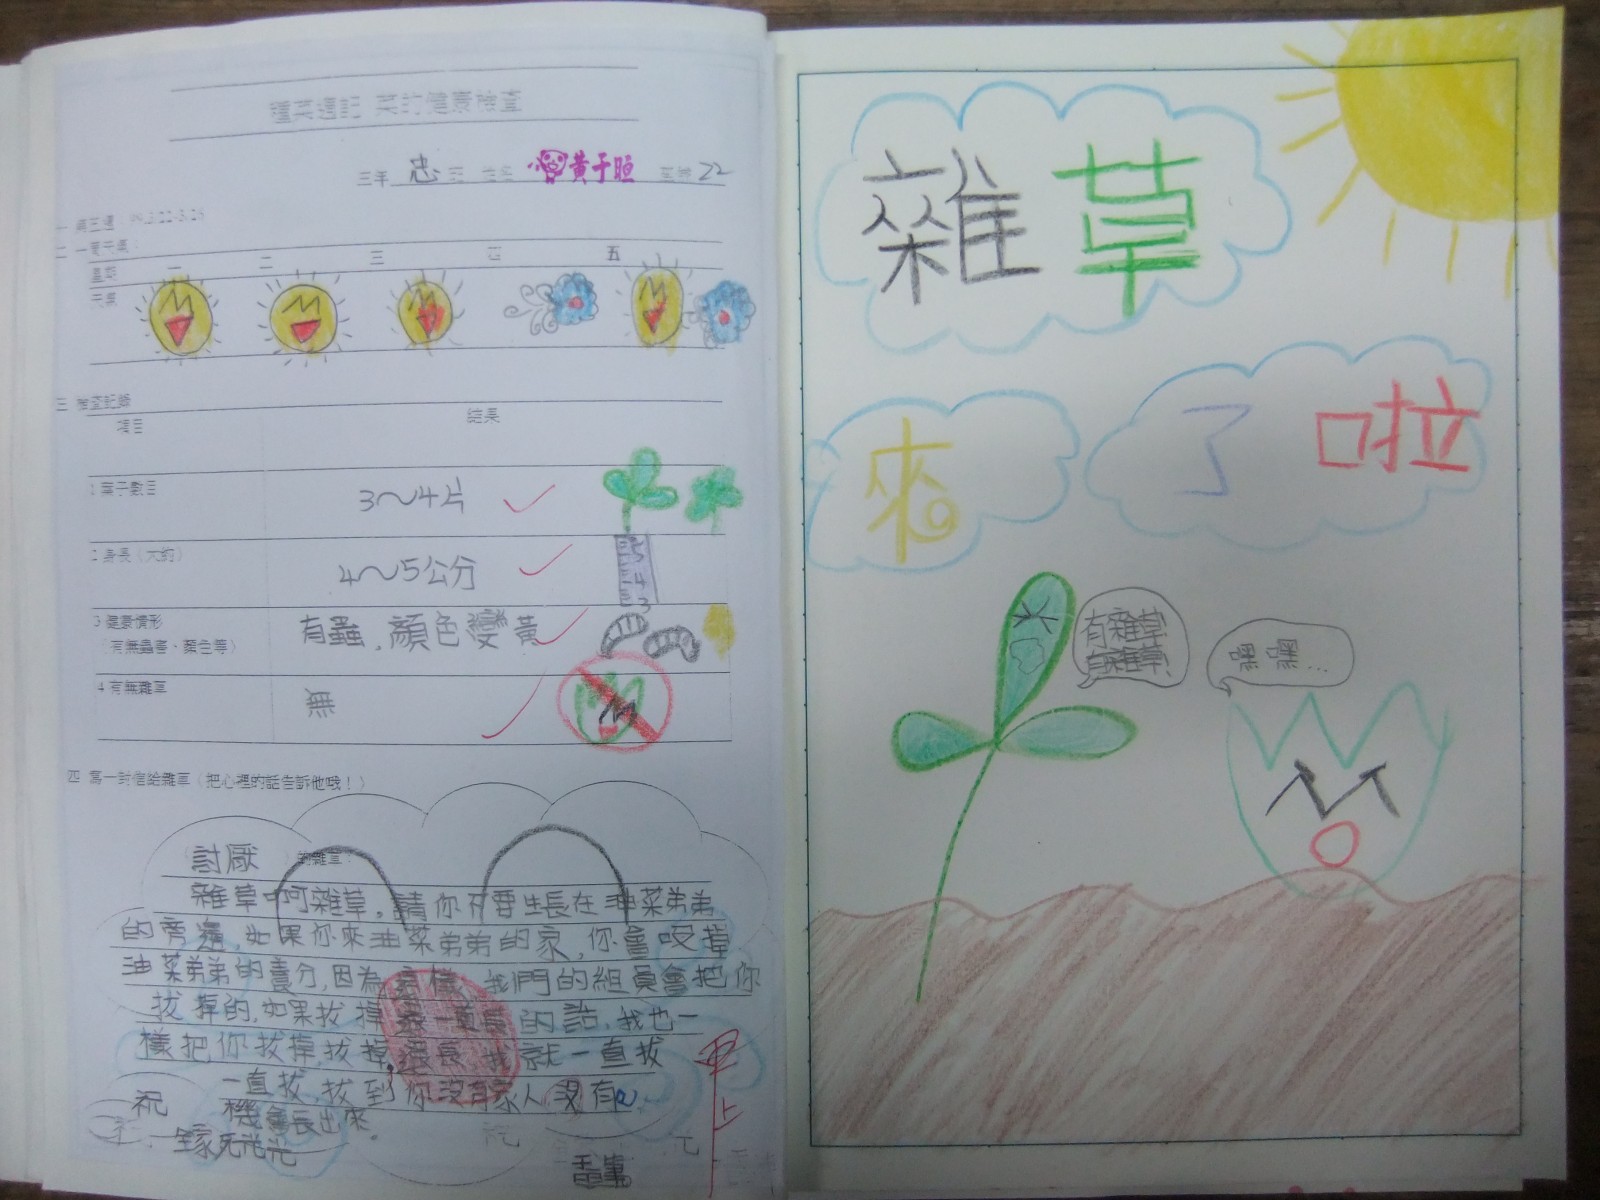 種菜週記 菜的健康檢查
三年 忠 班 姓名 黃于晅 座號 22
一 第三週：99.3.22-3.26
二 一週天氣：
星期 一 二 三 四 五
天氣
三 檢查記錄
項目 結果
1 葉子數目 3～4片
2 身長（大約） 4～5公分
5
4
3
3 健康情形
（有無蟲害、顏色等） 有蟲，顏色變黃
4 有無雜草 無
四 寫一封信給雜草（把心裡的話告訴他哦！）
討厭 的雜草：
雜草啊雜草，請你不要生長在油菜弟弟
的旁邊，如果你來油菜弟弟的家，你會吸掉
油菜弟弟的養分，因為這樣，我們的組員會把你
拔掉的，如果拔掉還一直長的話，我也一
樣把你拔掉，拔掉還長，我就一直拔
一直拔，拔到你沒有家人沒有
機會長出來。
祝
全家死光光
雜草
來了啦
有雜草
有雜草！
嘿嘿…